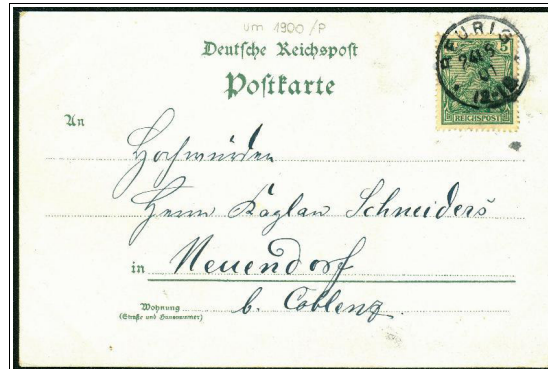 um 1900/P
Deutsche Reichspost
Postkarte
BEURIG
5
24.5
01
REICHSPOST
An
Hochwürden
Herrn Kaplan Schneiders
in Neuendorf
b. Coblenz.
Wohnung
(Straße und Hausnummer)